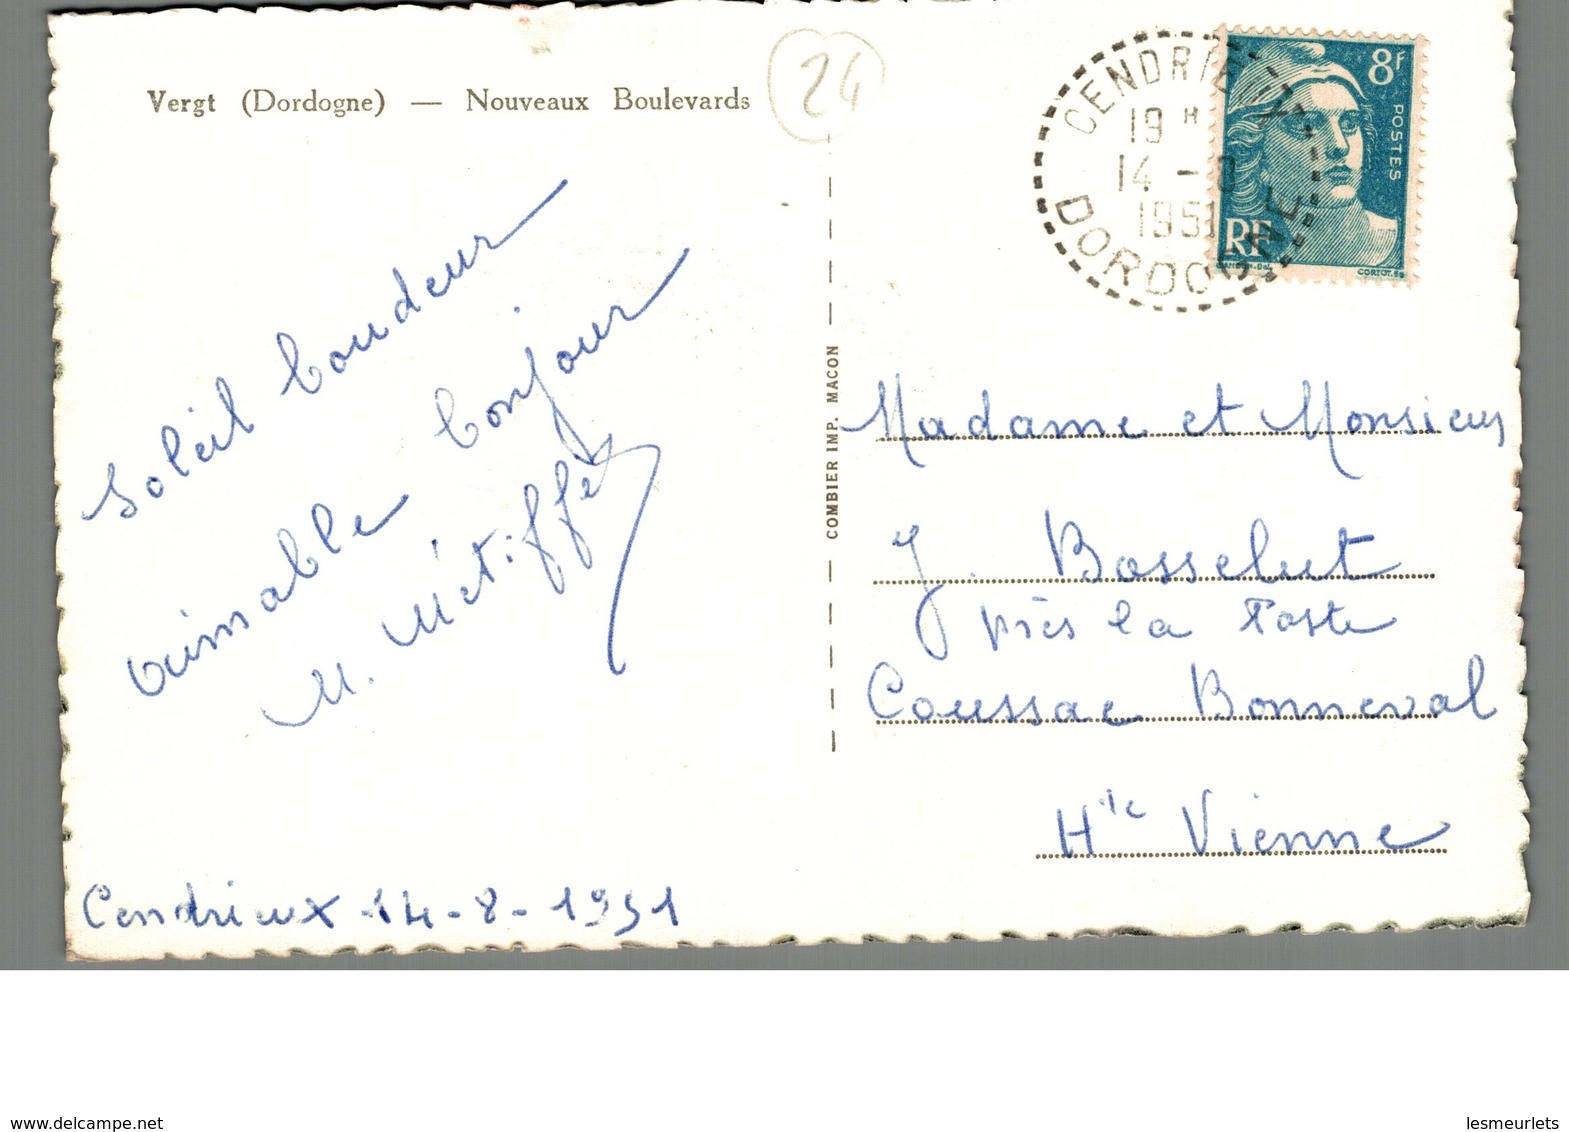 Vergt (Dordogne) — Nouveaux Boulevards
24
CENDRIEUX
19 H
14 - 8
1951
DORDOGNE
8F
POSTES
RF
GANDON-DEL.
CORTOT.SC
Soleil boudeur
aimable bonjour
M. Métiffé
COMBIER IMP. MACON
Madame et Monsieur
J. Bosselut
près la Poste
Coussac Bonneval
Hte Vienne
Cendrieux 14-8-1951
www.delcampe.net
lesmeurlets